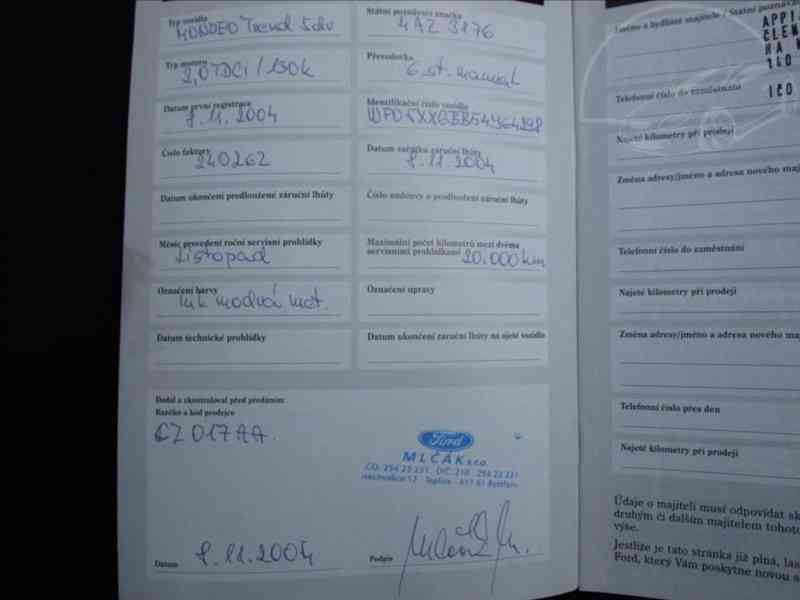 Typ vozidla
MONDEO Trend 5dv
Státní poznávací značka
4AZ 3176
Typ motoru
2,0TDCi / 130k
Převodovka
6 st. manual
Datum první registrace
8.11.2004
Identifikační číslo vozidla
Číslo faktury
240262
Datum začátku záruční lhůty
8.11.2004
Datum ukončení prodloužené záruční lhůty
Číslo smlouvy o prodloužení záruční lhůty
Měsíc provedení roční servisní prohlídky
Listopad
Maximální počet kilometrů mezi dvěma
servisními prohlídkami 20.000 km
Označení barvy
Ink modrá met.
Označení úpravy
Datum technické prohlídky
Datum ukončení záruční lhůty na ojeté vozidlo
Dodal a zkontroloval před prodáním:
Razítko a kód prodejce
CZ 017AA.
Ford
MLČÁK s.r.o.
Datum 8.11.2004
Podpis
Jméno a bydliště majitele / Státní poznáva
APPL
140
Telefonní číslo do zaměstnání
IČO
Najeté kilometry při prodeji
Změna adresy/jméno a adresa nového maj
Telefonní číslo do zaměstnání
Najeté kilometry při prodeji
Změna adresy/jméno a adresa nového ma
Telefonní číslo přes den
Najeté kilometry při prodeji
Údaje o majiteli musí odpovídat sk
druhým či dalším majitelem tohoto
výše.
Jestliže je tato stránka již plná, las
Ford, který Vám poskytne novou a